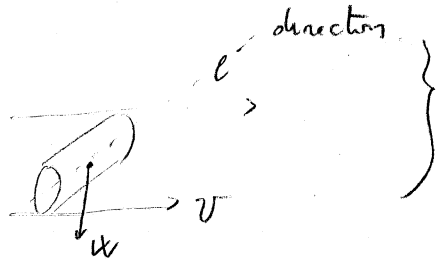 direction
l
v
W